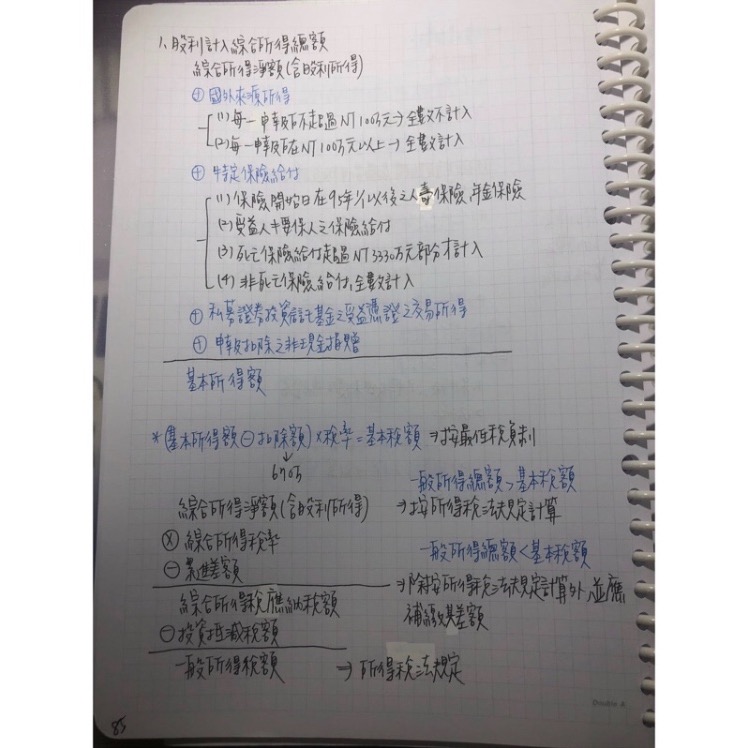 1、股利計入綜合所得總額
綜合所得淨額(含股利所得)
⊕ 國外來源所得
(1) 每一申報戶不超過NT 100萬元→全數不計入
(2) 每一申報戶在NT 100萬元以上→全數計入
⊕ 特定保險給付
(1) 保險開始日在95年1/1以後之人壽保險、年金保險
(2) 受益人≠要保人之保險給付
(3) 死亡保險給付超過NT 3330萬元部分才計入
(4) 非死亡保險給付,全數計入
⊕ 私募證券投資信託基金之受益憑證之交易所得
⊕ 申報扣除之非現金捐贈
基本所得額
*(基本所得額⊖扣除額)×稅率=基本稅額 ⇒按最低稅負制
↓
670萬
一般所得總額>基本稅額
綜合所得淨額(含股利所得) ⇒按所得稅法規定計算
ⓧ 綜合所得稅率
一般所得總額<基本稅額
⊖ 累進差額
⇒除按所得稅法規定計算外,並應
綜合所得稅應納稅額
補繳其差額
⊖ 投資抵減稅額
一般所得稅額 → 所得稅法規定
85
Double A